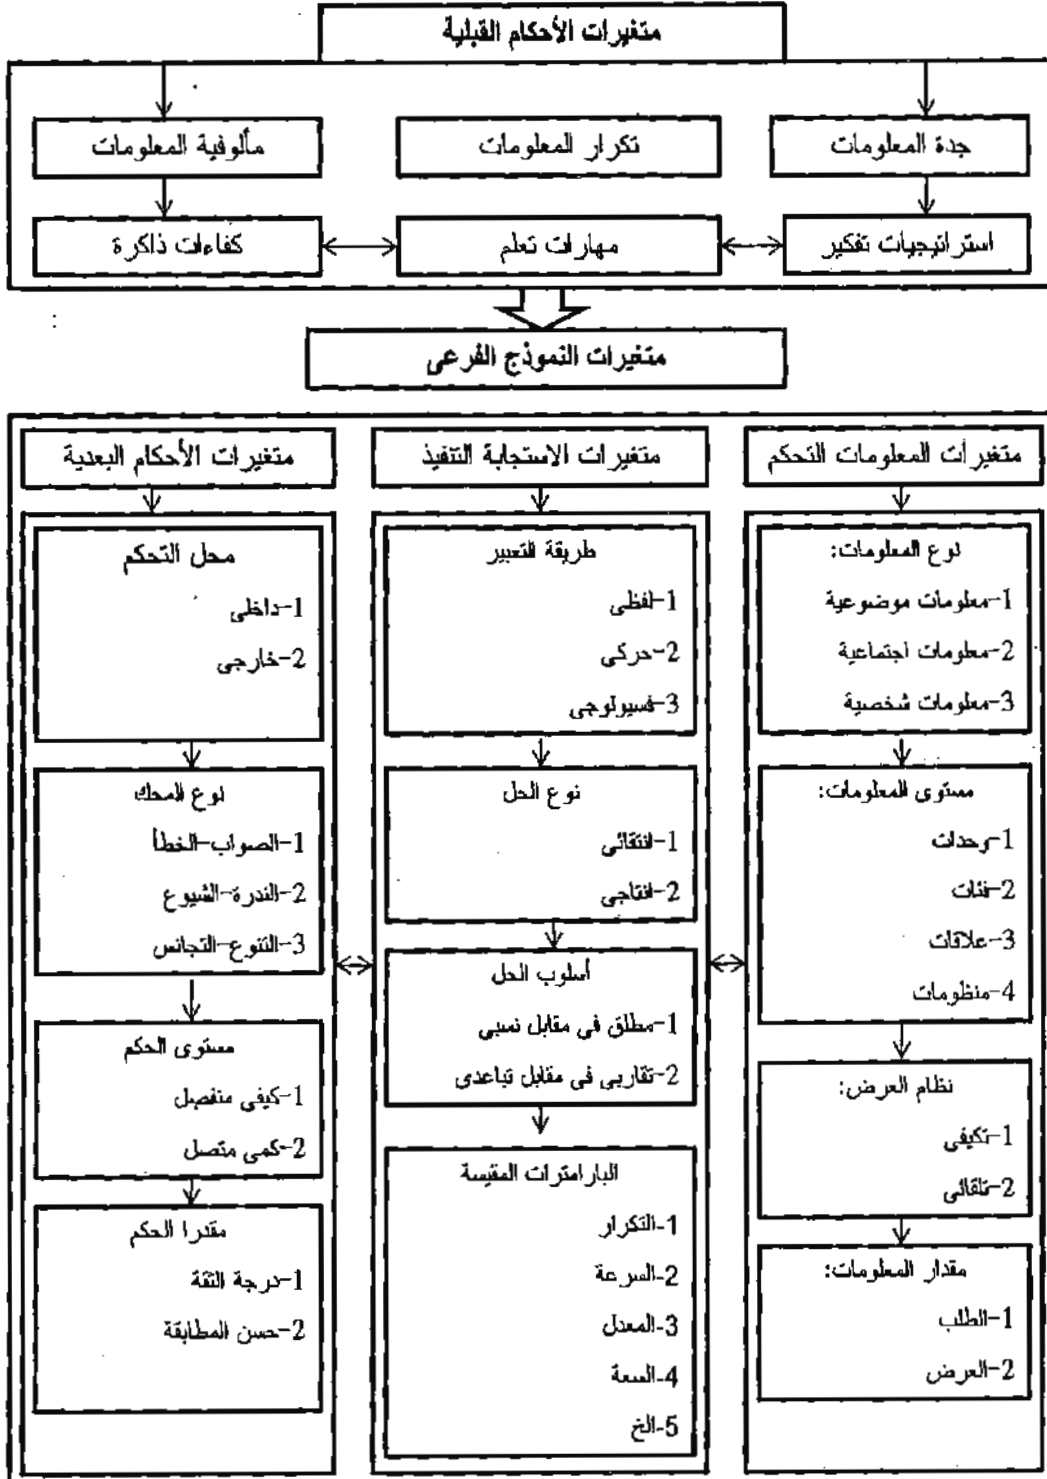 متغيرات الأحكام القبلية
جدة المعلومات
تكرار المعلومات
مألوفية المعلومات
استراتيجيات تفكير
مهارات تعلم
كفاءات ذاكرة
متغيرات النموذج الفرعى
متغيرات المعلومات التحكم
نوع المعلومات:
1-معلومات موضوعية
2-معلومات اجتماعية
3-معلومات شخصية
مستوى المعلومات:
1-وحدات
2-فئات
3-علاقات
4-منظومات
نظام العرض:
1-تكيفى
2-تلقائى
مقدار المعلومات:
1-الطلب
2-العرض
متغيرات الاستجابة التنفيذ
طريقة التعبير
1-لفظى
2-حركى
3-فسيولوجى
نوع الحل
1-انتقائى
2-انتاجى
أسلوب الحل
1-مطلق فى مقابل نسبى
2-تقاربى فى مقابل تباعدى
البارامترات المقيسة
1-التكرار
2-السرعة
3-المعدل
4-السعة
5-الخ
متغيرات الأحكام البعدية
محل التحكم
1-داخلى
2-خارجى
نوع المحك
1-الصواب-الخطأ
2-الندرة-الشيوع
3-التنوع-التجانس
مستوى الحكم
1-كيفى منفصل
2-كمى متصل
مقدرا الحكم
1-درجة الثقة
2-حسن المطابقة